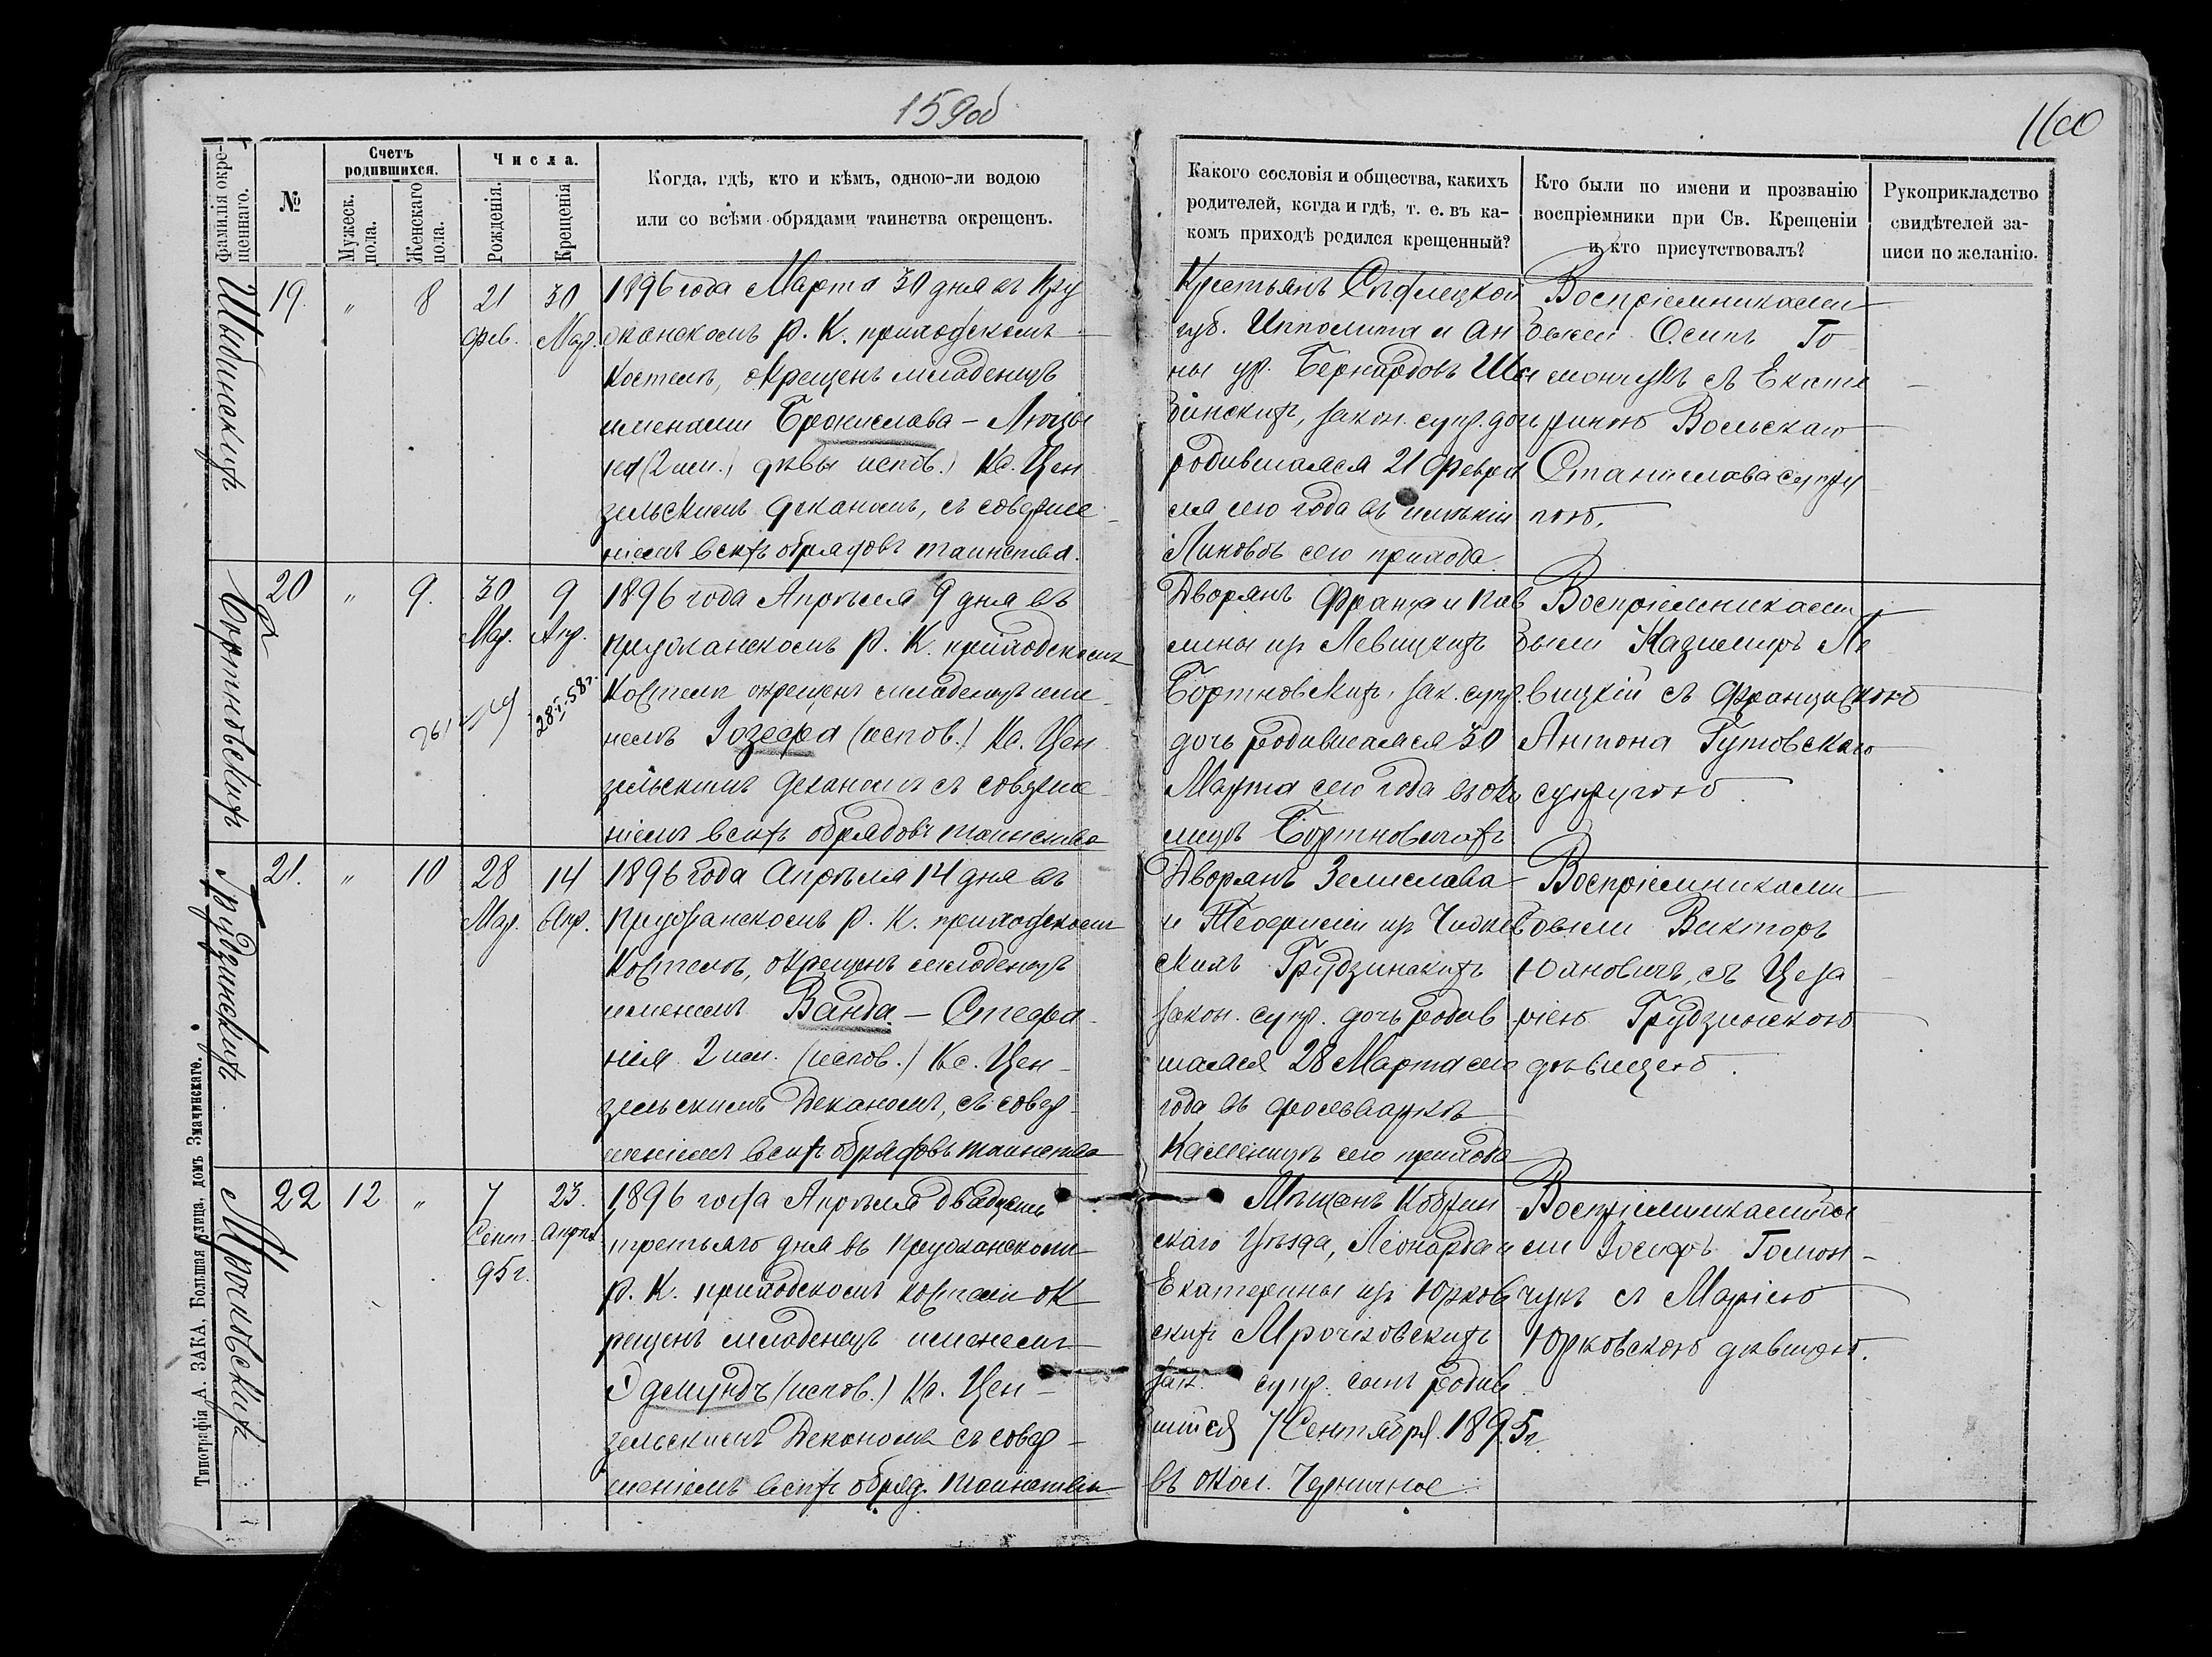 159об
160
фамилія окре-
щеннаго.
№
Счетъ
родившихся.
Мужеск.
пола.
Женскаго
пола.
Числа.
Рожденія.
Крещенія
Когда, гдѣ, кто и кѣмъ, одною-ли водою
или со всѣми обрядами таинства окрещенъ.
Какого сословія и общества, какихъ
родителей, когда и гдѣ, т. е. въ ка-
комъ приходѣ родился крещенный?
Кто были по имени и прозванію
воспріемники при Св. Крещеніи
и кто присутствовалъ?
Рукоприкладство
свидѣтелей за-
писи по желанію.
19.
"
8
21
Фев.
30
Мар.
1896 года Марта 30 дня въ Пру
жанскомъ Р. К. приходскомъ
Костелѣ, окрещенъ младенецъ
именами Бронислава - Люцы
на (2 им.) дѣвы испов.) Кс. Цен
зельскимъ деканомъ, съ соверше
ніемъ всѣхъ обрядовъ таинства.
Крестьянъ Сѣдлецкой
губ. Ипполита и Ан
ны ур.
закон. супр. дочь
родившаяся 21 Февра
ля сего года въ имѣніи
Линовѣ сего прихода.
Воспріемниками
были Осипъ Го
мончукъ съ Екате
риною Вольскаго
Станислава супру
гою.
Бортновскихъ
20
"
9.
30
Мар.
9
Апр.
28-I-58г.
1896 года Апрѣля 9 дня въ
Пружанскомъ Р. К. приходскомъ
Костелѣ окрещенъ младенецъ име
немъ Іозефа (испов.) Кс. Цен
зельскимъ деканомъ съ соверше
ніемъ всѣхъ обрядовъ таинства
Дворянъ Франца и Пав
лины изъ Левицкихъ
Бортновскихъ, зак. супр.
дочь родившаяся 30
Марта сего года въ око
лицѣ Бортновичахъ
Воспріемниками
были Казимиръ Ле
вицкій съ Францишкою
Антона Гутовскаго
супругою.
Грудзинскихъ
21.
"
10
28
Мар.
14
Апр.
1896 года Апрѣля 14 дня въ
Пружанскомъ Р. К. приходскомъ
Костелѣ, окрещенъ младенецъ
именемъ Ванда - Стефа
нія 2 им. (испов.) Кс. Цен-
зельскимъ Деканомъ, съ совер-
шеніемъ всѣхъ обрядовъ таинства
Дворянъ Земислава
и Теофиліи изъ
скихъ Грудзинскихъ
закон. супр. дочь родив
шаяся 28 Марта сего
года въ фольваркѣ
Каменицѣ сего прихода
Воспріемниками
были Викторъ
Юановичъ, съ Цеза
ріею Грудзинскою
дѣвицею.
Мрочковскихъ
22
12
"
7
Сент.
95 г.
23.
Апрѣл.
1896 года Апрѣля двадцать
третьяго дня въ Пружанскомъ
Р. К. приходскомъ костелѣ ок
рещенъ младенецъ именемъ
Эдмундъ (испов.) Кс. Цен-
зельскимъ Деканомъ съ совер-
шеніемъ всѣхъ обряд. таинства
Мѣщанъ Кобрин
скаго Уѣзда, Леонарда и
Екатерины изъ Юрков
скихъ Мрочковскихъ
зак. супр. сынъ родив
шійся 7 Сентября 1895 г.
въ окол. Черничное.
Воспріемниками бы
ли Іосифъ Гомон-
чукъ съ Маріею
Юрковскою дѣвицею.
Типографія А. ЗАКА, Большая улица, домъ Змачинскаго.